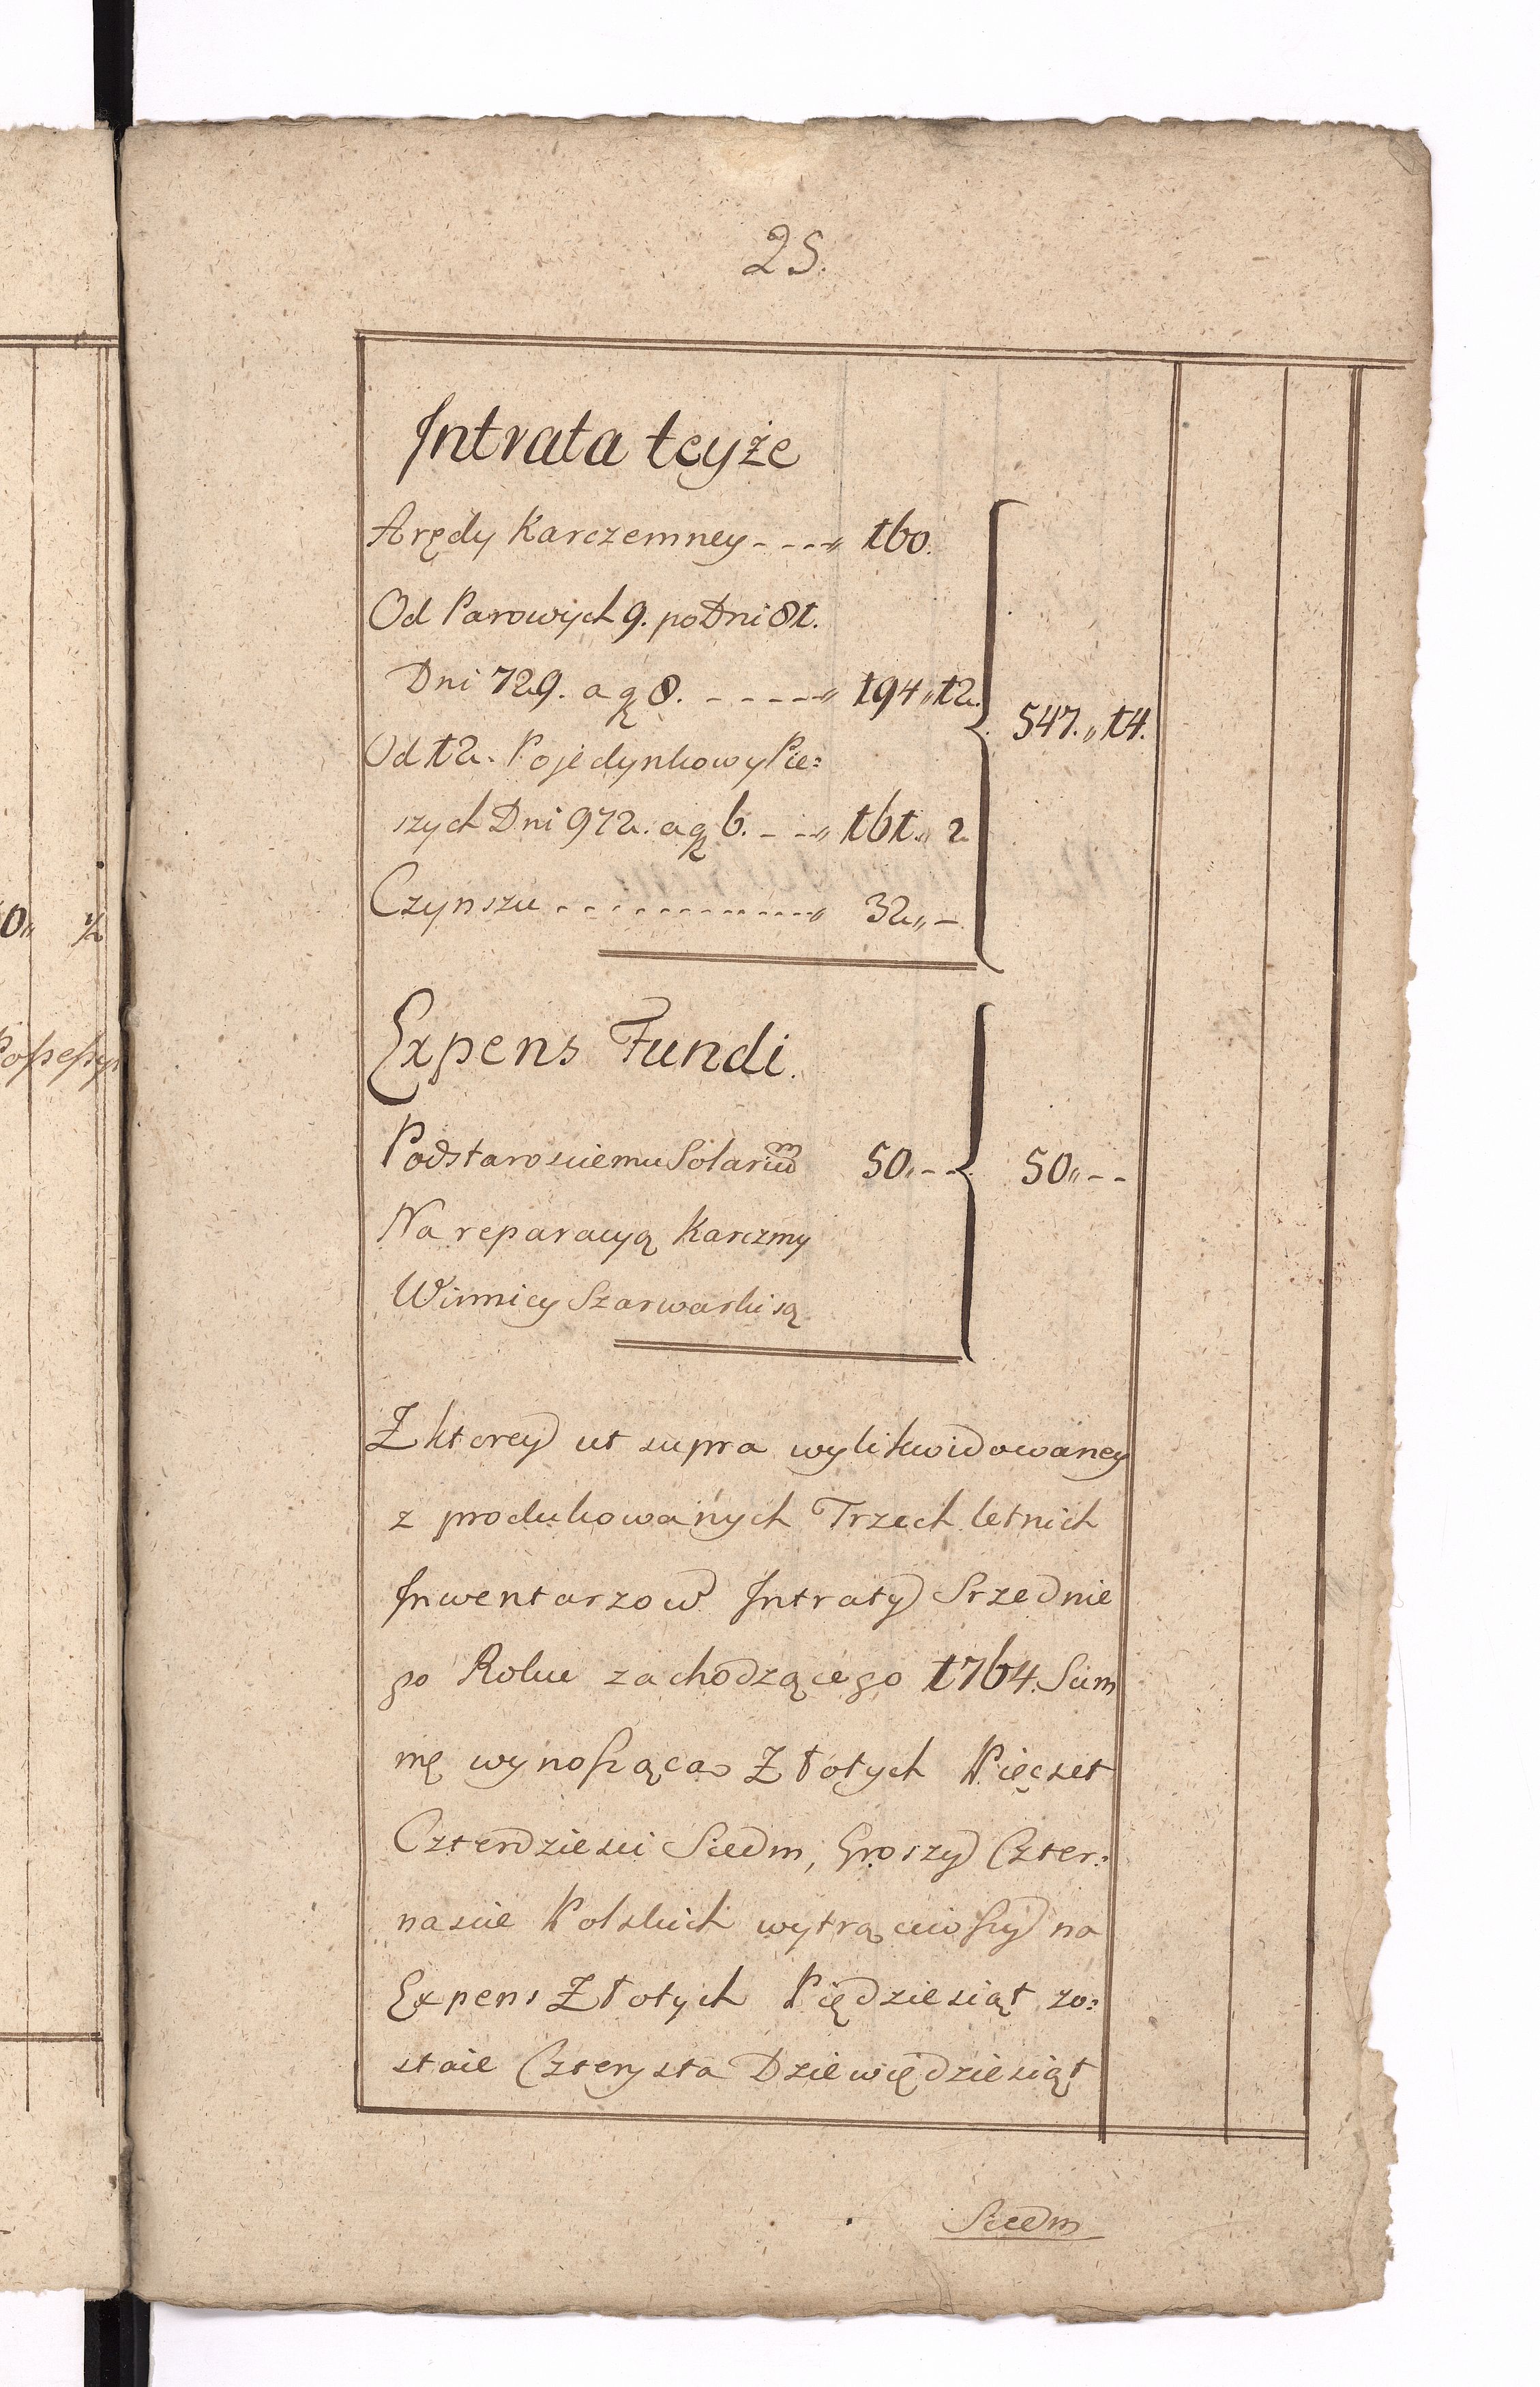 25.
Intrata teyże
Arędy Karczemney - - - -„ 160.
Od Parowych 9. po Dni 81.
Dni 729. a gr 8. - - - - -„ 194„12.
547.„14.
Od 12. Pojedynkowy Pie:
szych Dni 972. a gr 6. - - -„ 161.„ 2
Czynszu - - - - - - - - - - - -„ 32„ -
Expens Fundi.
Podstarosciemu Solariũ 50„ - - 50„ - -
Na reparacyą Karczmy
Winnicy Szarwarki są
Z ktorey ut supra wylikwidowaney
z produkowanych Trzech letnich
Inwentarzow Intraty Srzednie
go Roku zachodzącego 1764. Sum
mę wynoszącą Złotych Pięcset
Czterdziesci Siedm, Groszy Czter:
nascie Polskich wytrąciwszy na
Expens Złotych Piędziesiąt zo:
staie Czterysta Dziewiędziesiąt
Siedm
0„ ½
Possessy